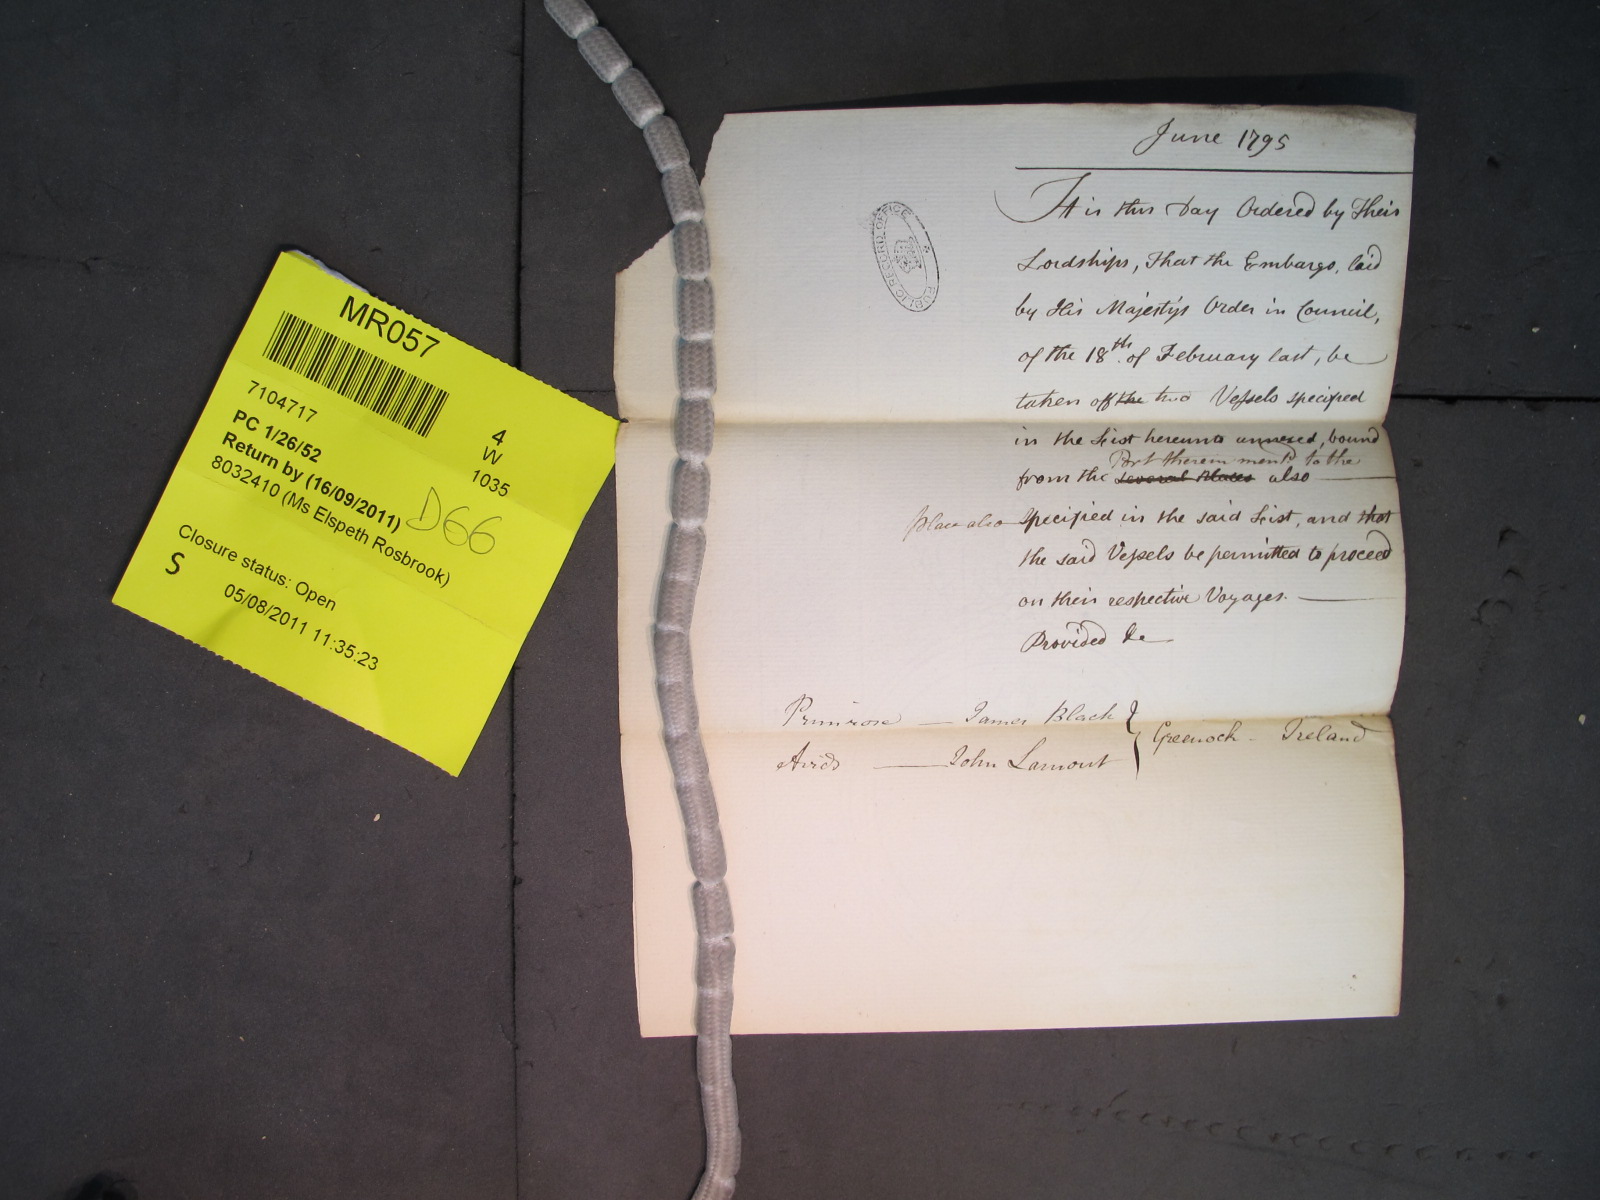 MR057
7104717
4
W
1035
PC 1/26/52
Return by (16/09/2011)
8032410 (Ms Elspeth Rosbrook)
D66
Closure status: Open
S
05/08/2011 11:35:23
PUBLIC RECORD OFFICE
June 1795
It is this Day Ordered by Their
Lordships, That the Embargo, laid
by His Majesty's Order in Council,
of the 18th. of February last, be
taken off the two Vessels specified
in the List hereunto annexed, bound
Port therein mentd to the
from the several Places also
place also specified in the said List, and that
the said Vessels be permitted to proceed
on their respective Voyages.
Provided &c
Primrose — James Black
Greenock - Ireland
John Lamont